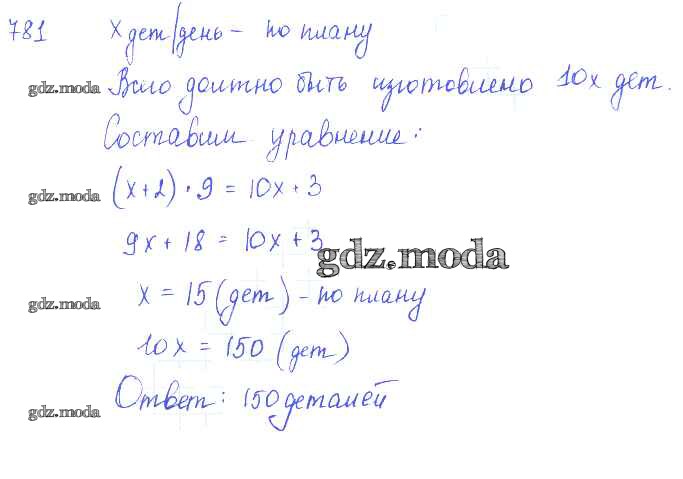 781 x дет/день - по плану
gdz.moda Всего должно быть изготовлено 10x дет.
Составим уравнение:
gdz.moda (x+2) · 9 = 10x + 3
9x + 18 = 10x + 3
gdz.moda
gdz.moda x = 15 (дет) - по плану
10x = 150 (дет)
gdz.moda Ответ: 150 деталей